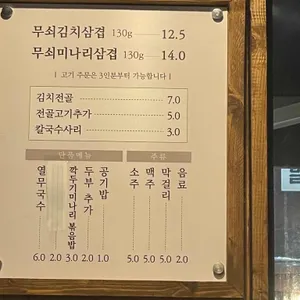 무쇠김치삼겹 130g 12.5
무쇠미나리삼겹 130g 14.0
| 고기 주문은 3인분부터 가능합니다 |
김치전골 7.0
전골고기추가 5.0
칼국수사리 3.0
단품메뉴
열무국수 6.0
깍두기 2.0
미나리볶음밥 3.0
두부 추가 2.0
공기밥 1.0
주류
소주 5.0
맥주 5.0
막걸리 5.0
음료 2.0